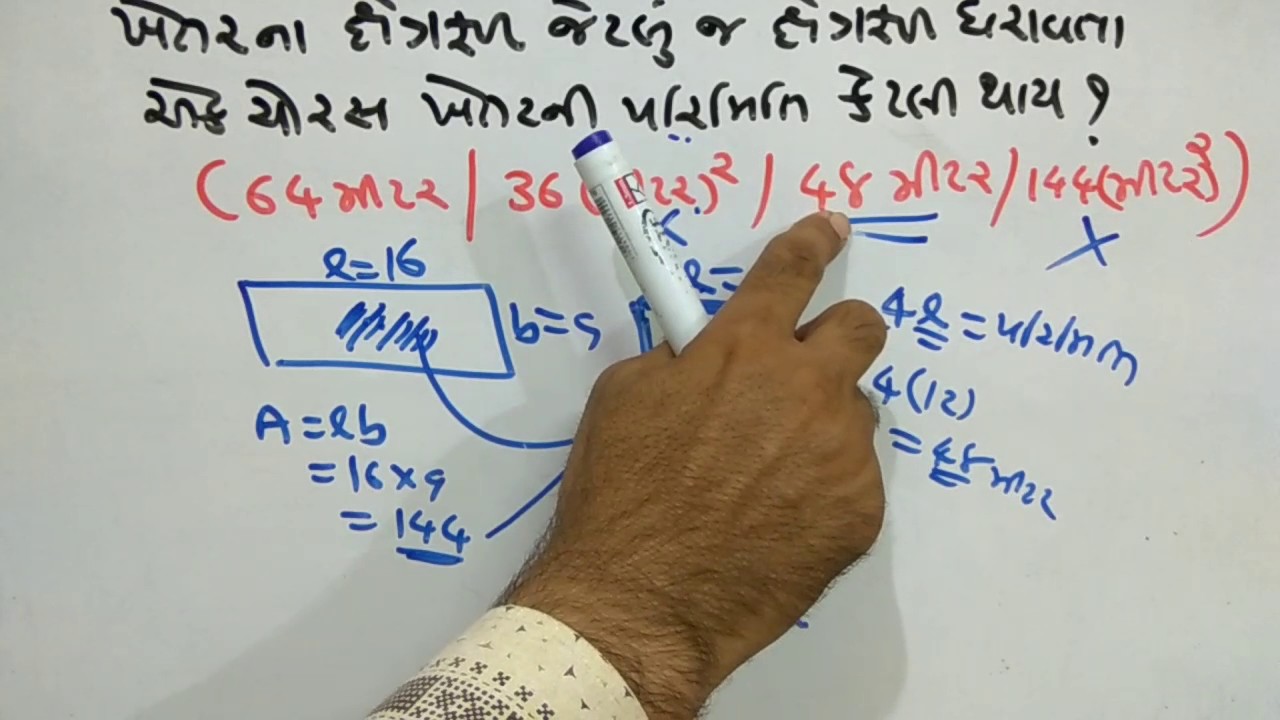 ખેતરના ક્ષેત્રફળ જેટલું જ ક્ષેત્રફળ ધરાવતા
એક ચોરસ ખેતરની પરિમિતિ કેટલી થાય ?
(64 મીટર / 36 ( ટર)² / 48 મીટર / 144(મીટર)²)
l=16
b=9
l=
4l = પરિમિતિ
4(12)
= 48 મીટર
A = lb
= 16 × 9
= 144